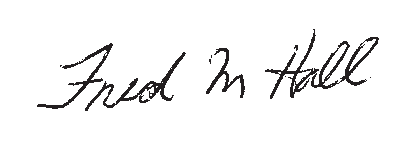 Fred M Hall